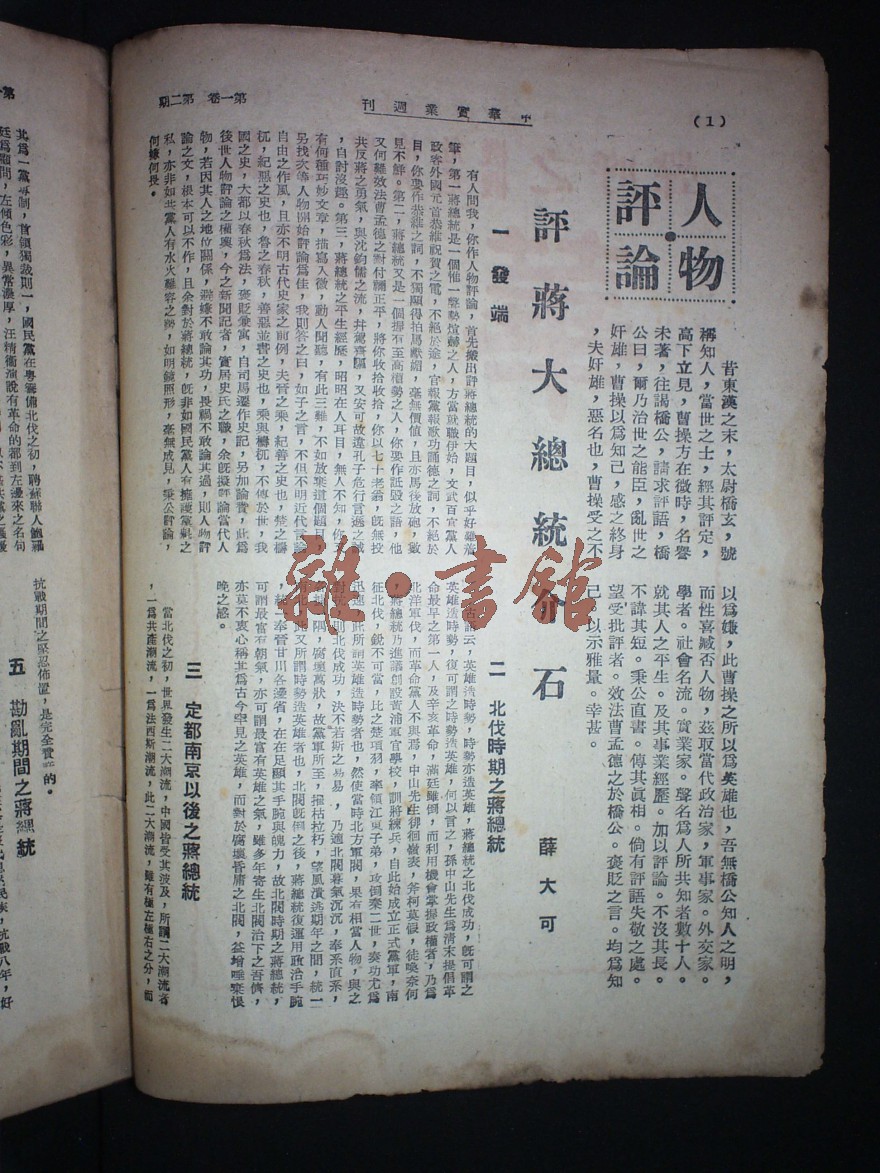 (1)
中華實業週刊
第一卷 第二期
人物評論
昔東漢之末，太尉橋玄，號
稱知人，當世之士，經其評定，
高下立見，曹操方在微時，名譽
未著，往謁橋公，請求評語，橋
公曰，爾乃治世之能臣，亂世之
奸雄，曹操以爲知己，感之終身
，夫奸雄，惡名也，曹操受之不
以爲嫌，此曹操之所以爲英雄也，吾無橋公知人之明，
而性喜臧否人物，茲取當代政治家，軍事家。外交家。
學者。社會名流。實業家。聲名爲人所共知者數十人。
就其人之平生。及其事業經歷。加以評論。不沒其長。
不諱其短。秉公直書。傳其眞相。倘有評語失敬之處。
望受批評者。效法曹孟德之於橋公。褒貶之言。均爲知
己，以示雅量。幸甚。
評蔣大總統介石
薛大可
一 發端
有人問我，你作人物評論，首先搬出評蔣總統的大題目，似乎好難着
筆，第一蔣總統是一個惟一聲勢煊赫之人，方當就職伊始，文武百官黨人
政客外國元首恭維祝賀之電，不絕於途，官報黨報歌功誦德之詞，不絕於
目，你要作恭維之詞，不獨顯得拍馬獻媚，毫無價值，且亦馬後放砲，數
見不鮮。第二，蔣總統又是一個握有至高權勢之人，你要作詆毀之語，他
又何難效法曹孟德之對付禰正平，將你收拾收拾，你以七十老翁，旣無投
共反蔣之勇氣，與沈鈞儒之流，并駕齊驅，又安可故違孔子危行言遜之誡
，自討沒趣。第三，蔣總統之平生經歷，昭昭在人耳目，無人不知，你
有何種巧妙文章，描寫入微，動人聞聽，有此三難，不如放棄這個題目，
另找次等人物開始評論爲佳，我則答之曰，如子之言，不但不明近代言論
自由之作風，且亦不明古代史家之前例，夫晉之乘，紀善之史也，楚之檮
杌，紀惡之史也，魯之春秋，善惡並書之史也，乘與檮杌，不傳於世，我
國之史，大都以春秋爲法，褒貶兼寓，自司馬遷作史記，另加論賛，此爲
後世人物評論之極輿，今之新聞記者，實居史氏之職，余旣擬評論當代人
物，若因其人之地位關係，辭嫌不敢論其功，畏禍不敢論其過，則人物評
論之文，根本可以不作，且余對於蔣總統，旣非如國民黨人有擁護黨魁之
私，亦非如共黨人有水火難容之勢，如明鏡照形，毫無成見，秉公評論，
何嫌何畏。
二 北伐時期之蔣總統
古語云，英雄造時勢，時勢亦造英雄，蔣總統之北伐成功，旣可謂之
英雄造時勢，復可謂之時勢造英雄，何以言之，孫中山先生爲清末提倡革
命最早之第一人，及辛亥革命，滿廷雖倒，而利用機會掌握政權者，乃爲
北洋軍伐，而革命黨人不與焉，中山先生徘徊嶺表，斧柯莫假，徒喚奈何
，蔣總統乃進議創設黃浦軍官學校，訓將練兵，自此始成立正式黨軍，南
征北伐，銳不可當，比之楚項羽，率領江東子弟，攻倒秦二世，奏功尤爲
迅速，此所謂英雄造時勢者也，然使當時北方軍閥，果有相當人物，與之
對抗，則北伐成功，決不若斯之易易，乃適北閥暮氣沉沉，奉系直系，
隅，腐壞萬狀，故黨軍所至，摺枯拉朽，望風潰逃期年之間，統一
南北，此又所謂時勢造英雄者也，北閥旣倒之後，蔣總統復運用政治手腕
，統一奉晉甘川各邊省，在在足顯其手腕與魄力，故北閥時期之蔣總統，
可謂最富有朝氣，亦可謂最富有英雄之氣，雖多年寄生北閥治下之吾儕，
亦莫不衷心稱其爲古今罕見之英雄，而對於腐壞昏庸之北閥，益增唾棄恨
晚之感。
三 定都南京以後之蔣總統
當北伐之初，世界發生二大潮流，中國皆受其波及，所謂二大潮流者
，一爲共產潮流，一爲法西斯潮流，此二大潮流，雖有極左極右之分，而
其爲一黨專制，首領獨裁則一，國民黨在粵籌備北伐之初，聘蘇聯人鮑羅
廷爲顧問，左傾色彩，異常濃厚，汪精衛演說有革命的都到左邊來之名句
抗戰期間之堅忍佈置，是完全實踐的。
五 勘亂期間之蔣總統
抗戰八年，好
雜·書館